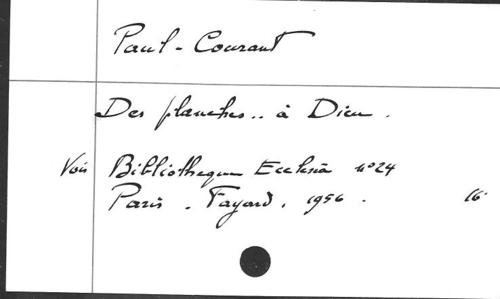 Paul-Courant
Des planches.. à Dieu.
Voir Bibliothèque Ecclesia n°24
Paris. Fayard. 1956. 16